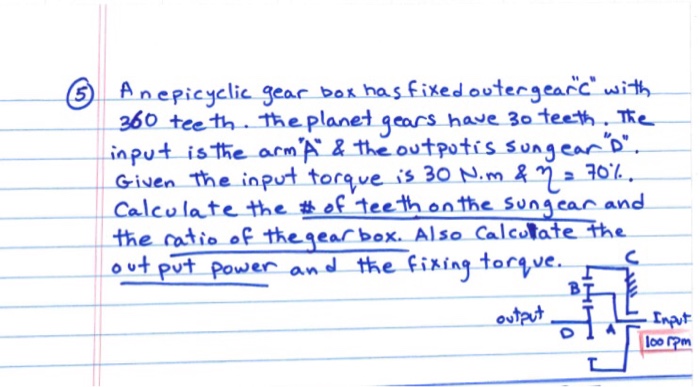 ⑤ An epicyclic gear box has fixed outer gear "C" with
360 teeth. The planet gears have 30 teeth. The
input is the arm "A" & the output is sun gear "D".
Given The input torque is 30 N.m & η = 70%.
Calculate the # of teeth on the sun gear and
the ratio of the gear box. Also Calculate the
out put power and the fixing torque.
C
B
output
D
A
Input
100 rpm